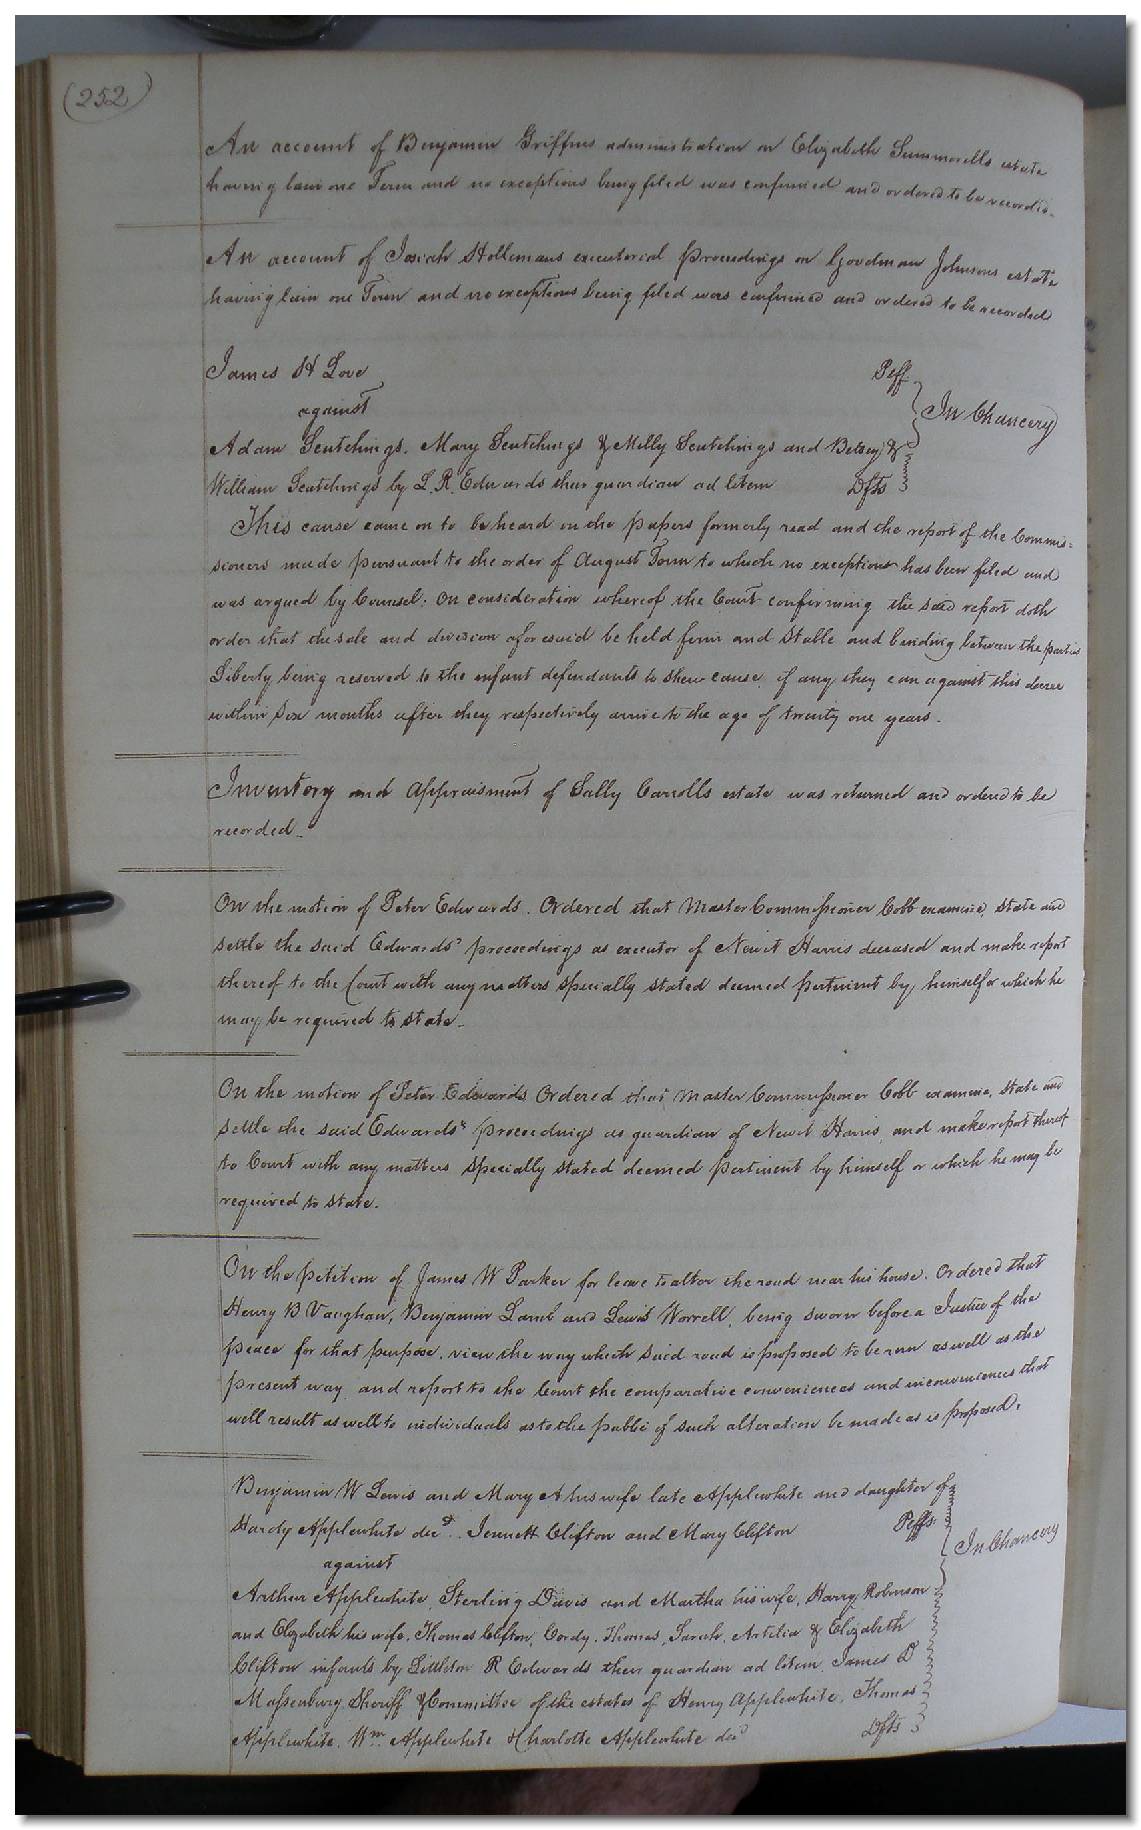 (252)
An account of Benjamin Griffins administration on Elizabeth Summerells estate
having lain one Term and no exceptions being filed was confirmed and ordered to be recorded.
An account of Josiah Hollemans executorial proceedings on Goodman Johnsons estate
having lain one Term and no exceptions being filed were confirmed and ordered to be recorded
James H Love Peff
against In Chancery
Adam Scutchings, Mary Scutchings & Milly Scutchings and Betsey &
William Scutchings by L. R. Edwards their guardian ad litem Dfts
This cause came on to be heard on the papers formerly read and the report of the Commis=
sioners made pursuant to the order of August Term to which no exceptions has been filed and
was argued by Counsel: On consideration whereof the Court confirming the said report doth
order that the sale and division aforesaid be held firm and stable and binding between the parties
Liberty being reserved to the infant defendants to shew cause if any they can against this decree
within six months after they respectively arrive to the age of twenty one years.
Inventory and Appraisment of Sally Carrolls estate was returned and ordered to be
recorded.
On the motion of Peter Edwards. Ordered that Master Commissioner Cobb examine, state and
settle the said Edwards' proceedings as executor of Newit Harris deceased and make report
thereof to the Court with any matters specially stated deemed pertinent by himself or which he
may be required to state.
On the motion of Peter Edwards Ordered that Master Commissioner Cobb examine, state and
settle the said Edwards' proceedings as guardian of Newit Harris, and make report thereof
to Court with any matters specially stated deemed pertinent by himself or which he may be
required to state.
On the petition of James W Parker for leave to alter the road near his house. Ordered that
Henry B Vaughan, Benjamin Lamb and Lewis Worrell, being sworn before a Justice of the
peace for that purpose, view the way which said road is proposed to be run as well as the
present way, and report to the Court the comparative conveniences and inconveniences that
will result as well to individuals as to the public if such alteration be made as is proposed.
Benjamin W Lewis and Mary A his wife late Applewhite and daughter of
Hardy Applewhite decd. Jennett Clifton and Mary Clifton Peffs
against In Chancery
Arthur Applewhite, Sterling Davis and Martha his wife, Harry Robinson
and Elizabeth his wife, Thomas Clifton, Cordy, Thomas, Sarah, Artelia & Elizabeth
Clifton infants by Littleton R Edwards their guardian ad litem, James D
Massenburg Sheriff & Committee of the estates of Henry Applewhite, Thomas
Applewhite, Wm. Applewhite & Charlotte Applewhite decd Dfts